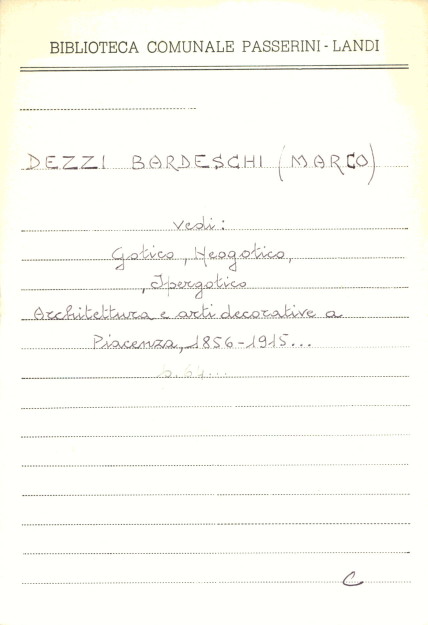 BIBLIOTECA COMUNALE PASSERINI - LANDI
DEZZI BARDESCHI (MARCO)
vedi:
Gotico, Neogotico,
, Ipergotico
Architettura e arti decorative a
Piacenza, 1856-1915...
C